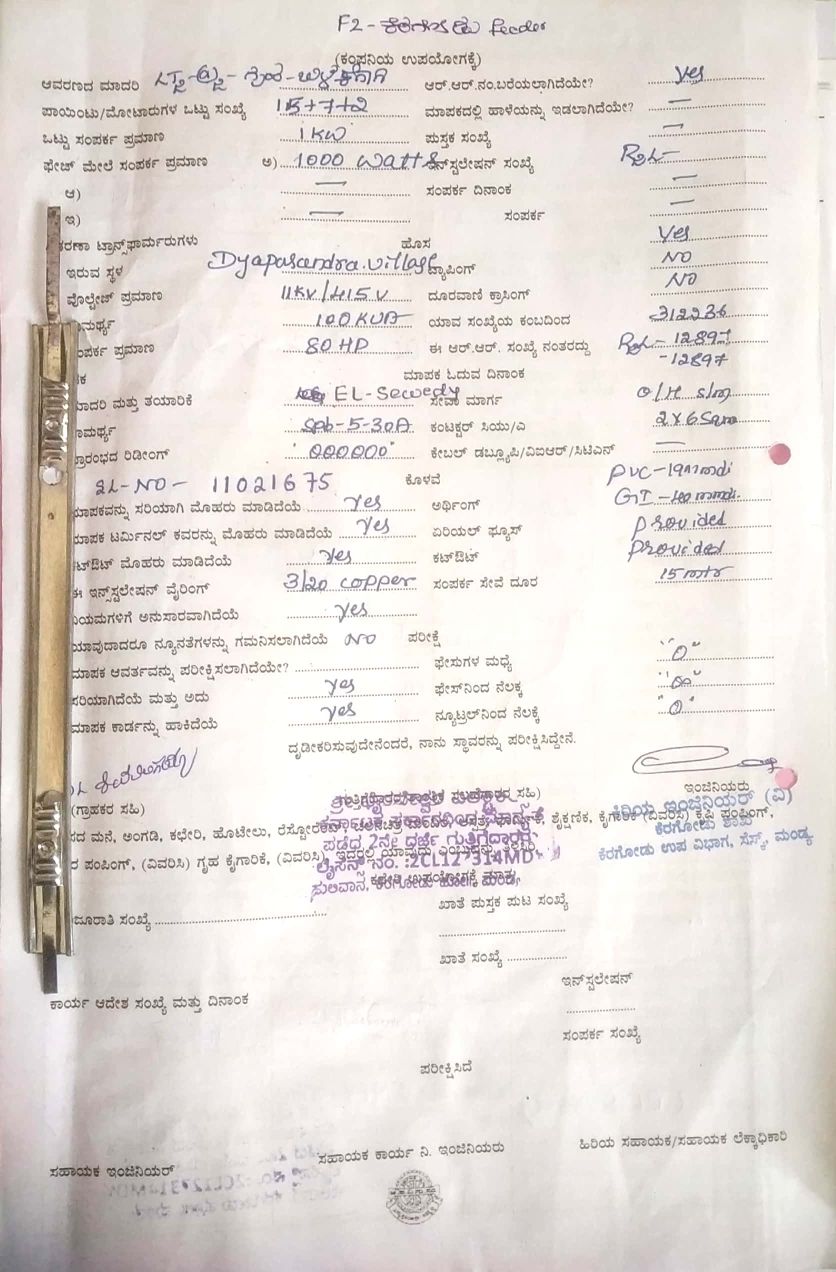 F2 - ಕೆರಗೋಡು Feeder
(ಕಂಪನಿಯ ಉಪಯೋಗಕ್ಕೆ)
ಆವರಣದ ಮಾದರಿ ಆರ್.ಆರ್.ನಂ.ಬರೆಯಲಾಗಿದೆಯೇ? yes
ಪಾಯಿಂಟು/ಮೋಟಾರುಗಳ ಒಟ್ಟು ಸಂಖ್ಯೆ 15+7+2 ಮಾಪಕದಲ್ಲಿ ಹಾಳೆಯನ್ನು ಇಡಲಾಗಿದೆಯೇ? —
ಒಟ್ಟು ಸಂಪರ್ಕ ಪ್ರಮಾಣ 1 KW ಪುಸ್ತಕ ಸಂಖ್ಯೆ —
ಫೇಜ್ ಮೇಲೆ ಸಂಪರ್ಕ ಪ್ರಮಾಣ ಅ) 1000 Watts ಇನ್‌ಸ್ಟಲೇಷನ್ ಸಂಖ್ಯೆ
ಆ) — ಸಂಪರ್ಕ ದಿನಾಂಕ —
ಇ) — ಸಂಪರ್ಕ —
ಕರಣಾ ಟ್ರಾನ್ಸ್‌ಫಾರ್ಮರುಗಳು ಹೊಸ yes
ಇರುವ ಸ್ಥಳ Dyapasandra.village ಟ್ಯಾಪಿಂಗ್ NO
ವೊಲ್ಟೇಜ್ ಪ್ರಮಾಣ 11KV/415V ದೂರವಾಣಿ ಕ್ರಾಸಿಂಗ್ NO
ಾಮರ್ಥ್ಯ 100KVA ಯಾವ ಸಂಖ್ಯೆಯ ಕಂಬದಿಂದ 312236
ಂಪರ್ಕ ಪ್ರಮಾಣ 80 HP ಈ ಆರ್.ಆರ್. ಸಂಖ್ಯೆ ನಂತರದ್ದು 12897
ಕ ಮಾಪಕ ಓದುವ ದಿನಾಂಕ -12897
ಾದರಿ ಮತ್ತು ತಯಾರಿಕೆ EL-Sewedy ಸೇವಾ ಮಾರ್ಗ O/H
ಾಮರ್ಥ್ಯ 5-30A ಕಂಟಕ್ಟರ್ ಸಿಯು/ಎ 2x6Sqmm
್ರಾರಂಭದ ರಿಡೀಂಗ್ "000000" ಕೇಬಲ್ ಡಬ್ಲ್ಯೂಪಿ/ವಿಐಆರ್/ಸಿಟಿಎನ್ —
SL-NO - 11021675 ಕೊಳವೆ PVC-19mmdi
ಾಪಕವನ್ನು ಸರಿಯಾಗಿ ಮೊಹರು ಮಾಡಿದೆಯೆ yes ಅರ್ಥಿಂಗ್ GI
ಾಪಕ ಟರ್ಮಿನಲ್ ಕವರನ್ನು ಮೊಹರು ಮಾಡಿದೆಯೆ yes ಏರಿಯಲ್ ಫ್ಯೂಸ್ provided
ಕಟ್‌ಔಟ್ ಮೊಹರು ಮಾಡಿದೆಯೆ yes ಕಟ್‌ಔಟ್ provided
ಈ ಇನ್‌ಸ್ಟಲೇಷನ್ ವೈರಿಂಗ್ 3/20 copper ಸಂಪರ್ಕ ಸೇವೆ ದೂರ 15 mtr
ಿಯಮಗಳಿಗೆ ಅನುಸಾರವಾಗಿದೆಯೆ yes
ಯಾವುದಾದರೂ ನ್ಯೂನತೆಗಳನ್ನು ಗಮನಿಸಲಾಗಿದೆಯೆ NO ಪರೀಕ್ಷೆ
ಮಾಪಕ ಆವರ್ತವನ್ನು ಪರೀಕ್ಷಿಸಲಾಗಿದೆಯೇ? ಫೇಸುಗಳ ಮಧ್ಯೆ "0"
ಸರಿಯಾಗಿದೆಯೆ ಮತ್ತು ಅದು yes ಫೇಸ್‌ನಿಂದ ನೆಲಕ್ಕೆ
ಮಾಪಕ ಕಾರ್ಡನ್ನು ಹಾಕಿದೆಯೆ yes ನ್ಯೂಟ್ರಲ್‌ನಿಂದ ನೆಲಕ್ಕೆ "0"
ದೃಢೀಕರಿಸುವುದೇನೆಂದರೆ, ನಾನು ಸ್ಥಾವರನ್ನು ಪರೀಕ್ಷಿಸಿದ್ದೇನೆ.
(ಗ್ರಾಹಕರ ಸಹಿ) ಸಹಿ) ಇಂಜಿನಿಯರು
ಕಿರಿಯ ಇಂಜಿನಿಯರ್ (ವಿ)
ಕೆರಗೋಡು ಶಾಖೆ
ಕೆರಗೋಡು ಉಪ ವಿಭಾಗ, ಸೆಸ್ಕ್, ಮಂಡ್ಯ
ಪಡೆದ 2ನೇ ದರ್ಜೆ ಗುತ್ತಿಗೆದಾರರು
ಲೈಸೆನ್ಸ್ ನಂ. :2CL127314MD
ದ ಮನೆ, ಅಂಗಡಿ, ಕಛೇರಿ, ಹೊಟೇಲು, ರೆಸ್ಟೋರೆಂಟ್, ಶೈಕ್ಷಣಿಕ, ಕೈಗಾರಿಕೆ (ವಿವರಿಸಿ) ಕೃಷಿ ಪಂಪಿಂಗ್,
ರ ಪಂಪಿಂಗ್, (ವಿವರಿಸಿ) ಗೃಹ ಕೈಗಾರಿಕೆ, (ವಿವರಿಸಿ)
ಕಛೇರಿ ಉಪಯೋಗಕ್ಕೆ ಮಾತ್ರ
ದೂರಾತಿ ಸಂಖ್ಯೆ ಖಾತೆ ಪುಸ್ತಕ ಪುಟ ಸಂಖ್ಯೆ
ಖಾತೆ ಸಂಖ್ಯೆ
ಇನ್‌ಸ್ಟಲೇಷನ್
ಕಾರ್ಯ ಆದೇಶ ಸಂಖ್ಯೆ ಮತ್ತು ದಿನಾಂಕ
ಸಂಪರ್ಕ ಸಂಖ್ಯೆ
ಪರೀಕ್ಷಿಸಿದೆ
ಸಹಾಯಕ ಇಂಜಿನಿಯರ್ ಸಹಾಯಕ ಕಾರ್ಯ ನಿ. ಇಂಜಿನಿಯರು ಹಿರಿಯ ಸಹಾಯಕ/ಸಹಾಯಕ ಲೆಕ್ಕಾಧಿಕಾರಿ